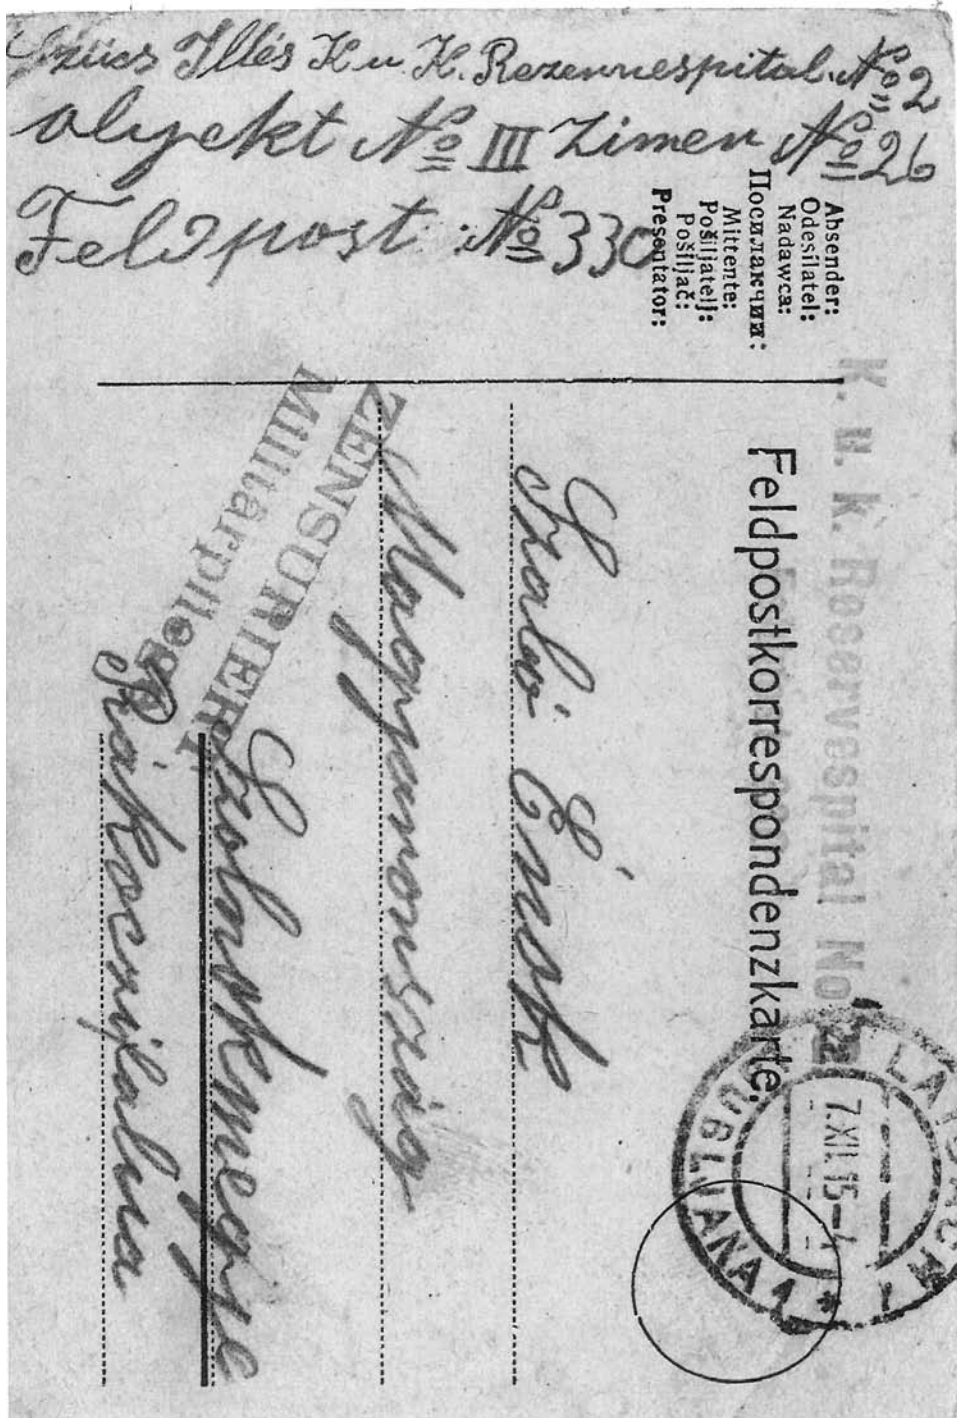 Szücs Illés K u. K. Rezervespital. № 2
objekt № III Zimer № 26
Feldpost. № 330
Absender:
Odesílatel:
Nadawca:
Посилакчии:
Mittente:
Pošiljatelj:
Pošiljač:
Presentator:
K. u. k. Reservespital No. 2
Feldpostkorrespondenzkarte.
LAIBACH 1
7.XII.15
LJUBLJANA 1
Szabó Énok
Magyarország
Szolnokmegye
Rákoczifalva
ZENSURIERT
Militärpflege